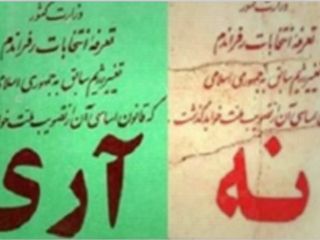 وزارت کشور
تعرفه انتخابات رفراندم
تغییر رژیم سابق به جمهوری اسلامی
اساسی آن از تصویب ملت خواهد گذشت
نه
وزارت کشور
تعرفه انتخابات رفراندم
تغییر رژیم سابق به جمهوری اسلامی
که قانون اساسی آن از تصویب ملت
آری